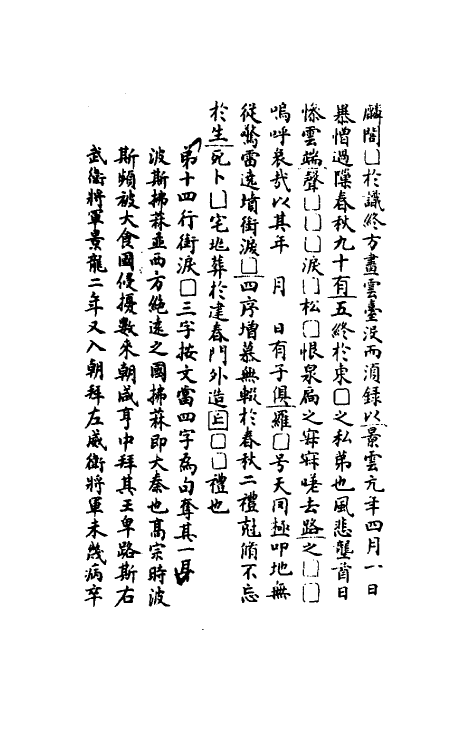 麟閣□於識終方畫雲臺没而湏録以景雲元年四月一日
暴憎過隟春秋九十有五終於東□之私苐也風悲壟首日
慘雲端聲□□□淚□松□恨泉扃之寐寐嗟去路之□□
嗚呼哀㦲以其年　月　日有子俱羅□号天罔極叩地無
從驚雷遶墳銜淚□四序增慕無輟於春秋二禮尅脩不忘
於生死卜□宅兆葬於建春門外造丘□□禮也
弟十四行銜淚□三字按文當四字為句奪其一
波斯拂菻並西方絶遠之國拂菻即大秦也髙宗時波
斯頻被大食國侵擾數来朝咸亨中拜其王卑路斯右
武衛將軍景龍二年又入朝拜左威衛將軍未幾病卒